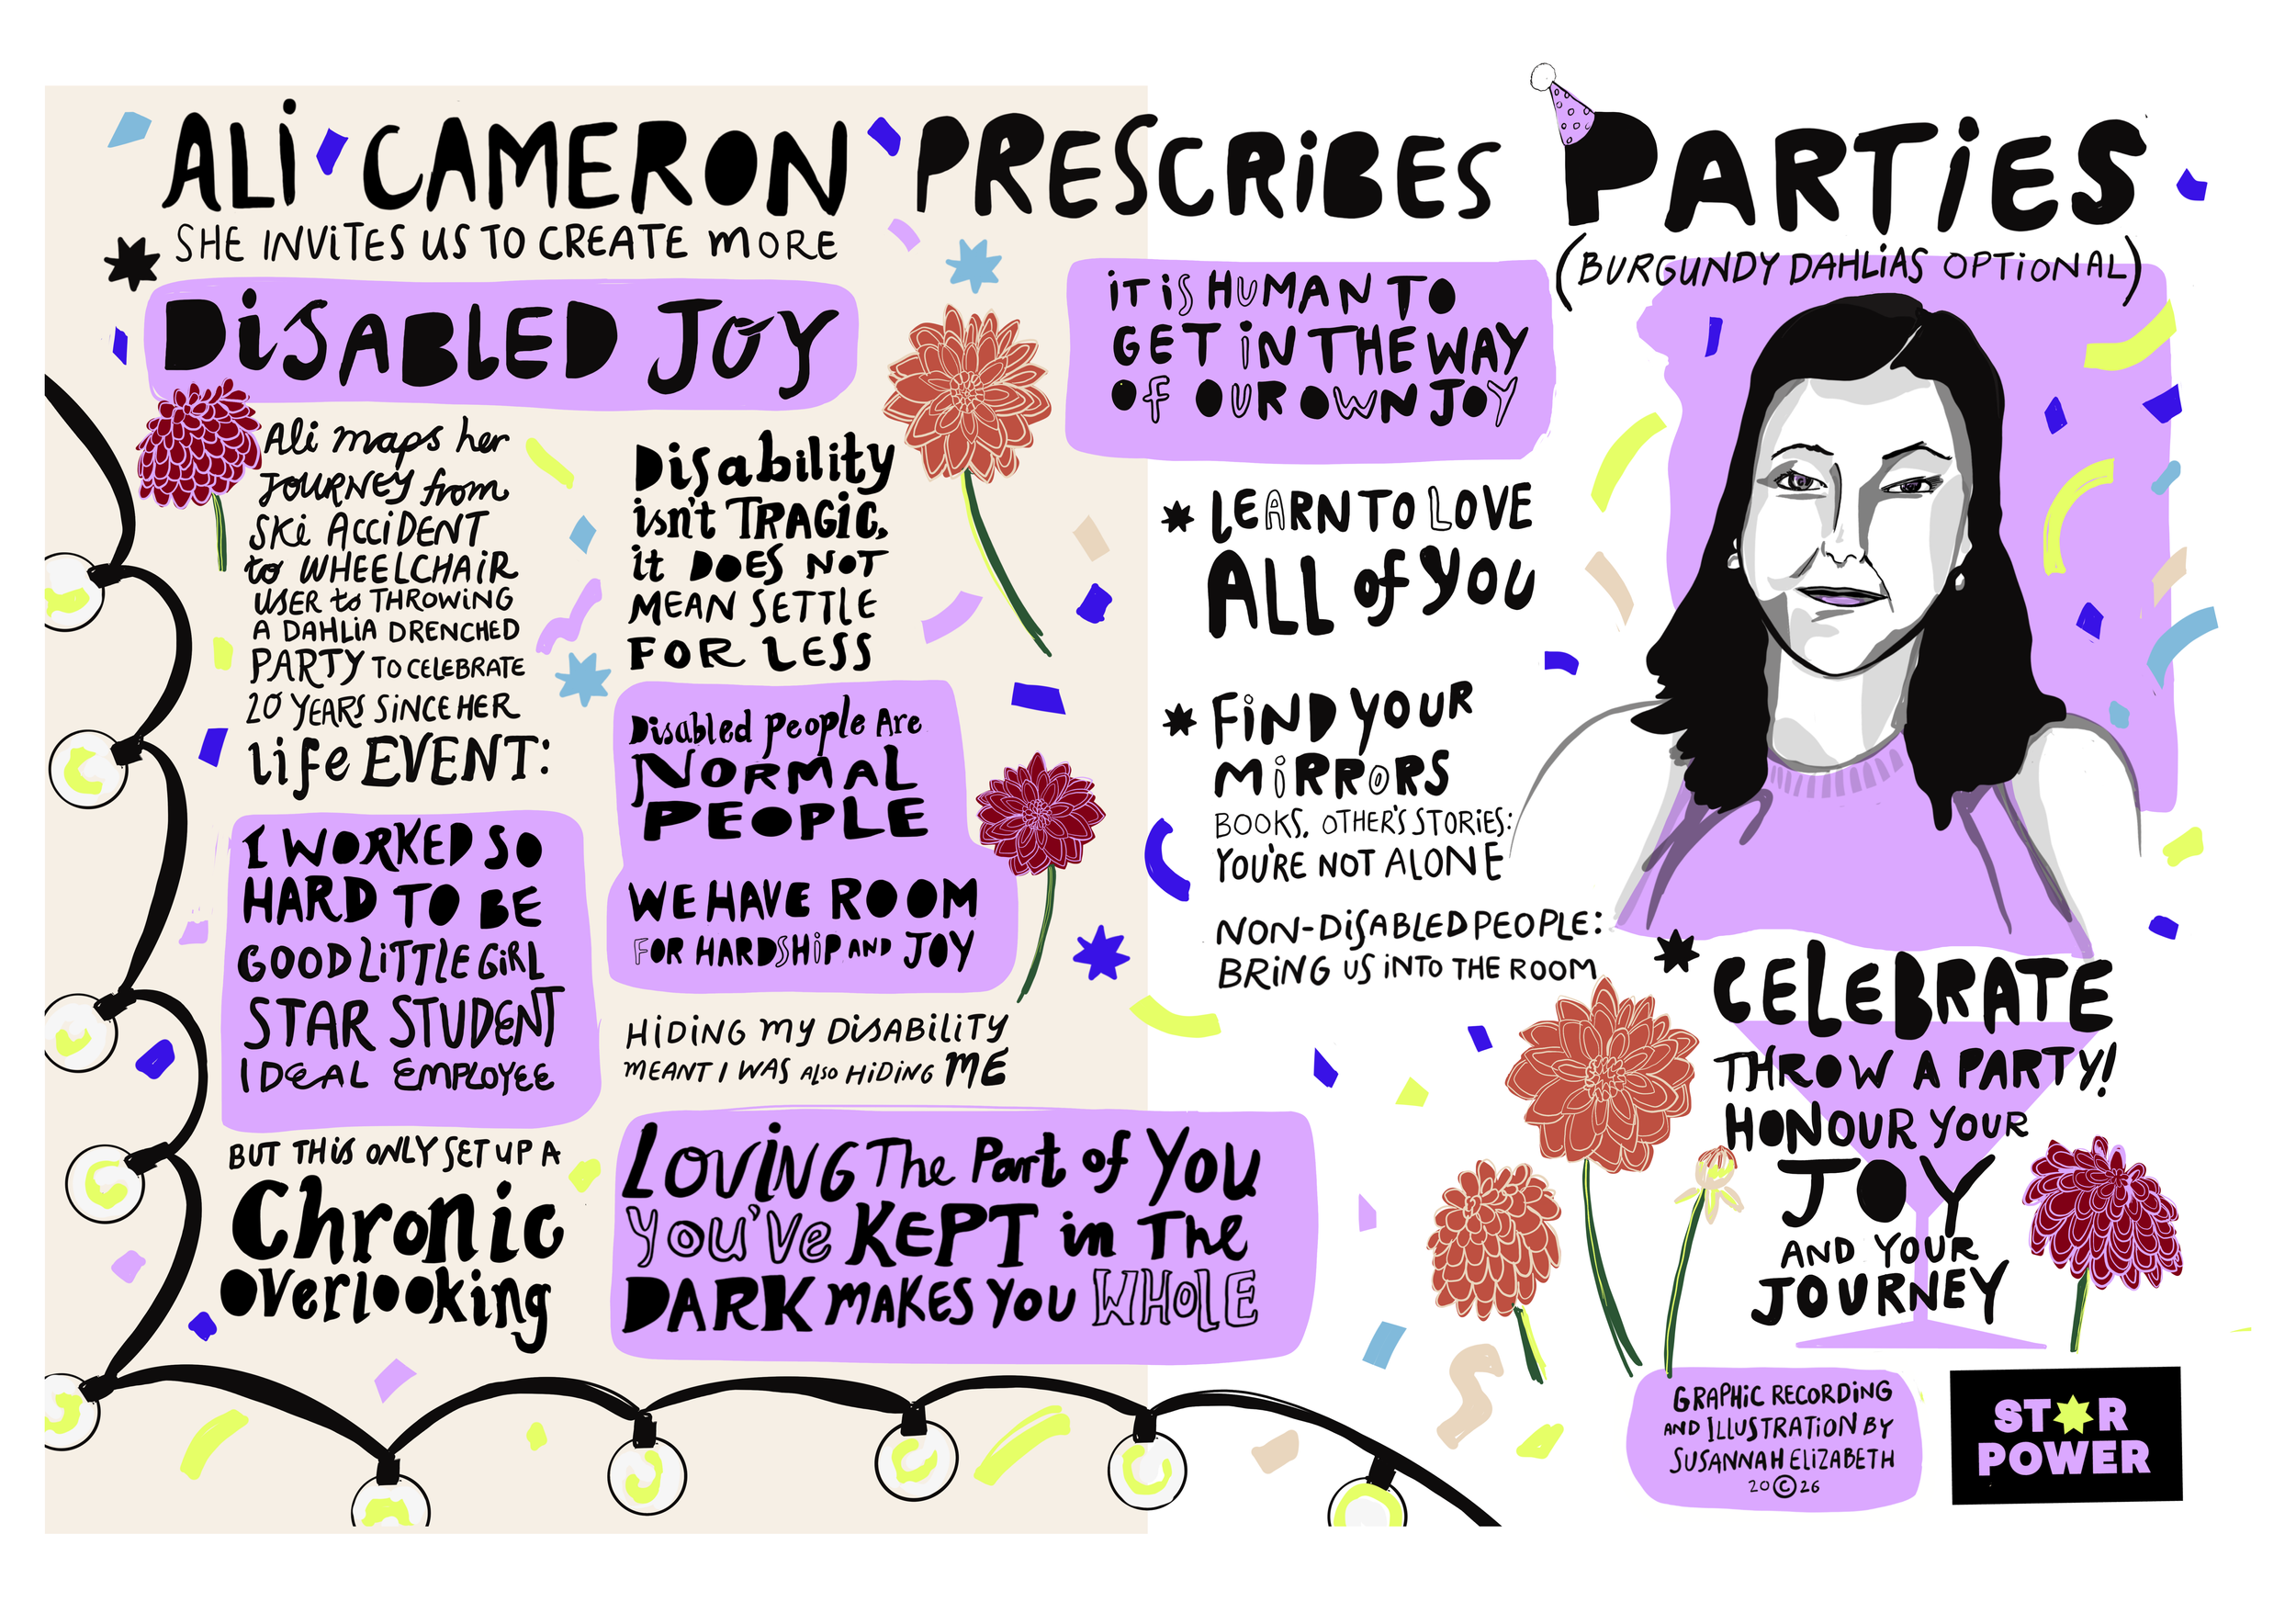 ALi CAMERON PRESCRiBES PARTiES
(BURGUNDY DAHLiAS OPTiONAL)
SHE INViTES US TO CREATE MORE
DiSABLED JOY
Ali maps her
JOURNEY from
SKi ACCiDENT
to WHEELCHAiR
USER to THROWiNG
A DAHLiA DRENCHED
PARTY TO CELEBRATE
20 YEARS SiNCE HER
life EVENT:
I WORKED SO
HARD TO BE
GOOD LiTTLE GiRL
STAR STUDENT
IDEAL EMPLOYEE
BUT THiS ONLY SET UP A
Chronic
overlooking
Disability
isn't TRAGIC,
it DOES NOT
MEAN SETTLE
FOR LESS
Disabled people Are
NORMAL
PEOPLE
WE HAVE ROOM
FOR HARDSHiP AND JOY
HiDiNG MY DiSABiLiTY
MEANT I WAS ALSO HiDiNG ME
LOViNG The Part of You
You've KEPT in The
DARK MAKES YOU WHOLE
iT iS HUMAN TO
GET iN THE WAY
OF OUR OWN JOY
LEARN TO LOVE
ALL of YOU
FiND YOUR
MiRRORS
BOOKS, OTHER'S STORiES:
YOU'RE NOT ALONE
NON-DiSABLED PEOPLE:
BRiNG US iNTO THE ROOM
CELEBRATE
THROW A PARTY!
HONOUR YOUR
JOY
AND YOUR
JOURNEY
GRAPHiC RECORDiNG
AND ILLUSTRATiON BY
SUSANNAH ELiZABETH
20©26
ST★R
POWER